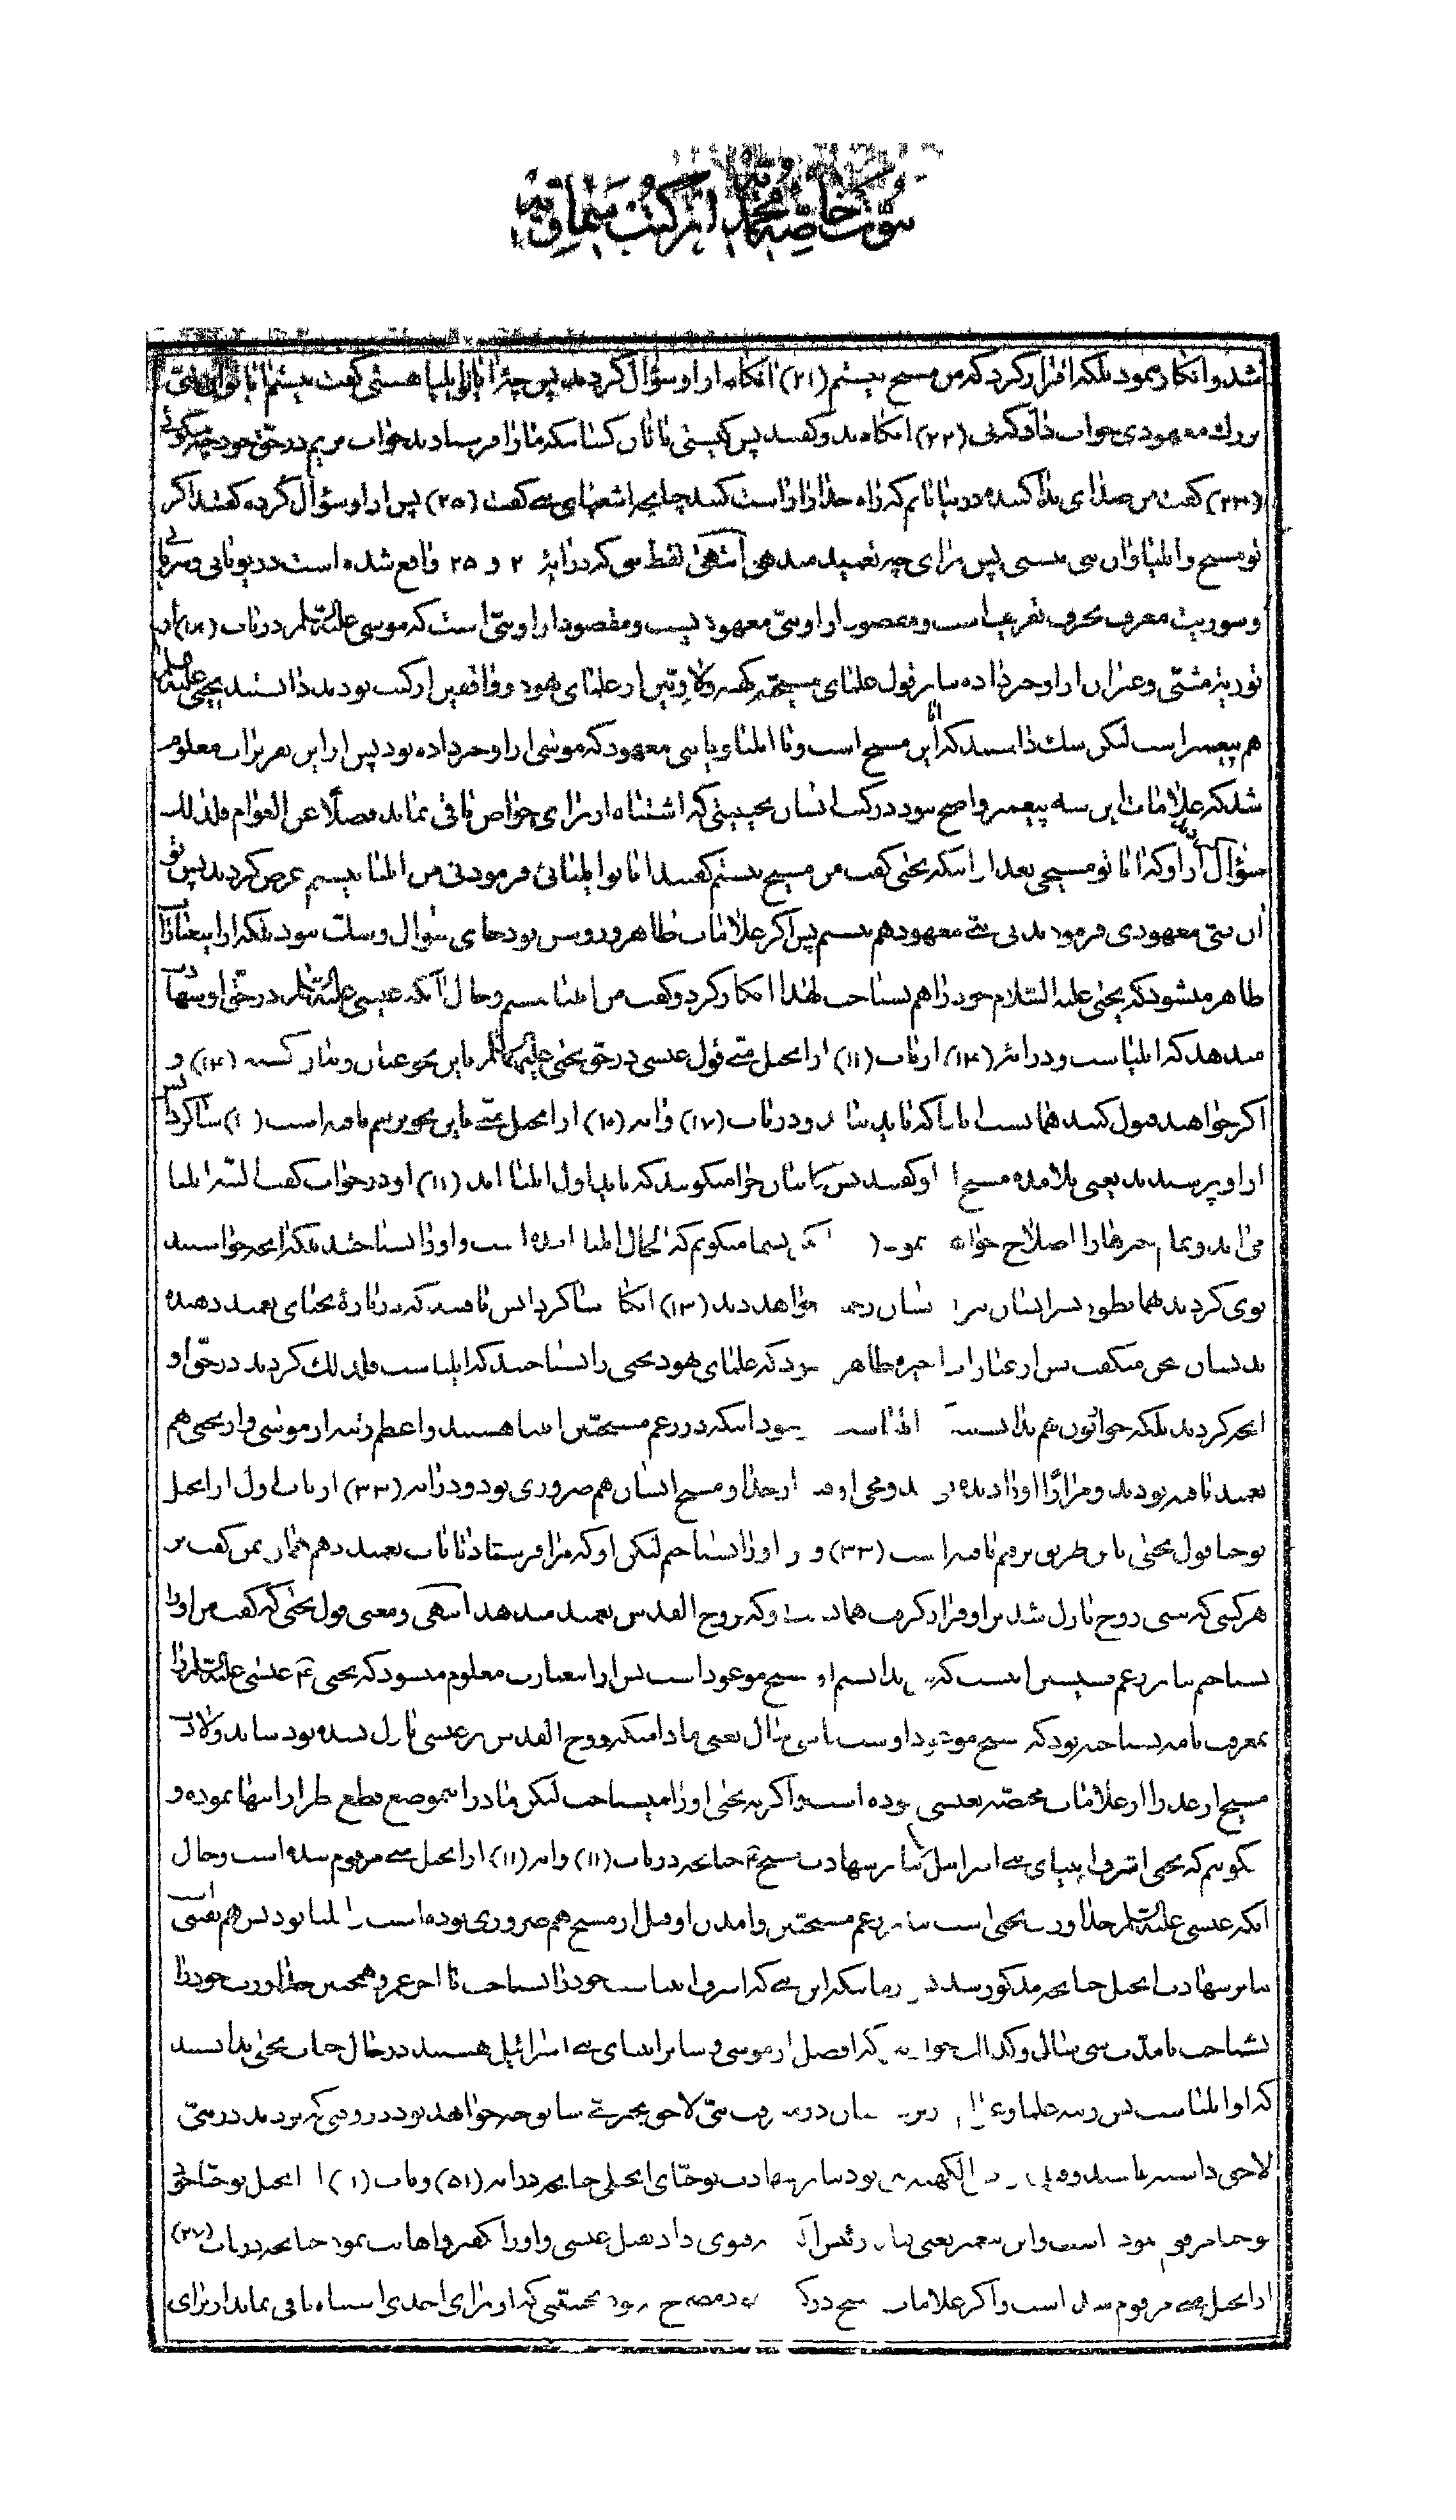 نبوّت خاصّه محمّدیّه از کتب سماویّه
شد و انکار ننمود بلکه اقرار کرد که من مسیح نیستم (۲۱) آنگاه از او سؤال کردند پس چرا آیا تو ایلیا هستی گفت نیستم آیا تو آن نبیّ
بزرك معهودی جواب داد که نی (۲۲) آنگاه بدو گفتند پس کیستی تا بآن کسانیکه ما را فرستادند جواب بریم در حق خود چه میگوئی
(۲۳) گفت من صدای ندا کننده در بیابانم که راه خدا را راست کنید چنانچه اشعیای نبی گفت (۲۵) پس از او سؤال کرده گفتند اگر
تو مسیح و ایلیا و آن نبی نیستی پس برای چه تعمید میدهی انتهی لفظ نبی که در آیهٔ ۲ و ۲۵ واقع شده است در یونانی و سریانی
و سورث معرف بحرف تعریف است و مقصود از او نبیّ معهود است و مقصود از او نبیّ است که موسی علیه السّلام در باب (۱۸) از
توریة مثنّی و غیر آن از او خبر داده بنابر قول علمای مسیحیّه کهنه ولاویّین از علمای یهود و واقفین از کتب بودند دانستند یحیی علیه السلام
هم پیغمبر است لیکن شك داشتند که آیا این مسیح است و یا ایلیا و یا نبی معهود که موسی از او خبر داده بود پس از این تقریرات معلوم
شد که علامات این سه پیغمبر واضح نبود در کتب ایشان بحیثیتی که اشتباه از برای خواص باقی نماند فضلًا عن العوام فلذلك
سؤال کردند از او که آیا تو مسیحی بعد از اینکه یحیی گفت من مسیح نیستم گفتند آیا تو ایلیائی فرمود نی من ایلیا نیستم عرض کردند پس تو
آن نبیّ معهودی فرمودند نی نبی معهود هم نیستم پس اگر علامات ظاهر و روشن بود جای سؤال و شك نبود بلکه از اینعبارة
ظاهر میشود که یحیی علیه السّلام خود را هم نشناخت لهذا انکار کرد و گفت من ایلیا نیستم و حال آنکه عیسی علیه السّلام در حق او شهادت
میدهد که ایلیا است و در آیهٔ (۱۴) از باب (۱۱) از انجیل متّی قول عیسی در حق یحیی علیهما السّلام باین نحو عیان و بیان گشته (۱۴) و
اگر خواهید قبول کنید همانست الیاس که باید بیاید و در باب (۱۷) و آیه (۱۰) از انجیل متّی باین نحو ترقیم یافته است (۱۰) شاگردانش
از او پرسیدند یعنی تلامذه مسیح از او گفتند پس کاتبان چرا میگویند که باید اول ایلیا آید (۱۱) او در جواب گفت البتّه ایلیا
می‌آید و تمام چیزها را اصلاح خواهد نمود لیکن بشما میگویم که الحال ایلیا آمده است و او را نشناختند بلکه آنچه خواستند
بوی کردند بهمانطور پسر انسان نیز از ایشان زحمت خواهد دید (۱۳) آنگاه شاگردانش یافتند که درباره یحیای تعمید دهنده
بدیشان سخن میگفت پس از عبارات اخیره ظاهر میشود که علمای یهود یحیی را نشناختند که ایلیاست فلذلك کردند در حق او
آنچه کردند بلکه حواریّون هم ندانستند که او ایلیاست با وجود اینکه در زعم مسیحیّین انبیا هستند و اعظم رتبه از موسی و از یحیی هم
تعمید یافته بودند و مرارًا او را دیده بودند و مجی او قبل از خدا و مسیح ایشان هم ضروری بود و در آیه (۳۳) از باب اول از انجیل
یوحنا قول یحیی باین طریق ترقیم یافته است (۳۳) و من او را نشناختم لیکن او که مرا فرستاد تا باب تعمید دهم همان بمن گفت بر
هر کسی که بینی روح نازل شد بر او قرار گرفت همانست او که بروح القدس تعمید میدهد انتهی و معنی قول یحیی که گفت من او را
نشناختم بنابر زعم قسیسین اینست که یقینا ندانستم او مسیح موعود است پس از این عبارت معلوم میشود که یحیی ع عیسی علیه السّلام را
بمعرفت تامه نشناخته بود که مسیح موعود اوست تا سی سال یعنی مادامیکه روح القدس بر عیسی نازل نشده بود شاید ولادت
مسیح از عذرا از علامات مختصّه بعیسی نبوده است و اگر نه یحیی او را میشناخت لیکن ما در این موضع قطع نظر از اینها نموده و
میگویم که یحیی اشرف انبیای بنی اسرائیل است بنابر شهادت مسیح ع چنانچه در باب (۱۱) و آیه (۱۱) از انجیل متی مرقوم شده است و حال
آنکه عیسی علیه السّلام خداوند یحیی است بنابر زعم مسیحیّین و آمدن او قبل از مسیح هم ضروری بوده است و ایلیا بودنش هم یقینی است
بنابر شهادت انجیل چنانچه مذکور شد در زمانیکه این نبی که اشرف انبیاست خود را نشناخت تا آخر عمر و همچنین خداوند خود را
نشناخت تا مدّت سی سال و کذالك حواریّین که افضل از موسی و سایر انبیای بنی اسرائیل هستند در حال حیات یحیی ندانستند
که او ایلیاست پس رتبه علما و عوام در نزد ایشان در معرفت نبیّ لاحق بخبر نبی سابق چه خواهد بود در روشی که بودند در نبیّ
لاحق داشته باشند و قیافا رئیس الکهنه نبی بود بنابر شهادت یوحنّای انجیلی چنانچه در آیه (۵۱) و باب (۱۱) از انجیل یوحنّا حقی
یوحنا مرقوم نموده است و این پیغمبر یعنی قیافا رئیس الکهنه فتوی داد بقتل عیسی و او را کفر و اهانت نمود چنانچه در باب (۲۷)
از انجیل متی مرقوم شده است و اگر علامات مسیح در کتب ایشان مصرّح بود بحیثیتی که از برای احدی اشتباه باقی نماند از برای